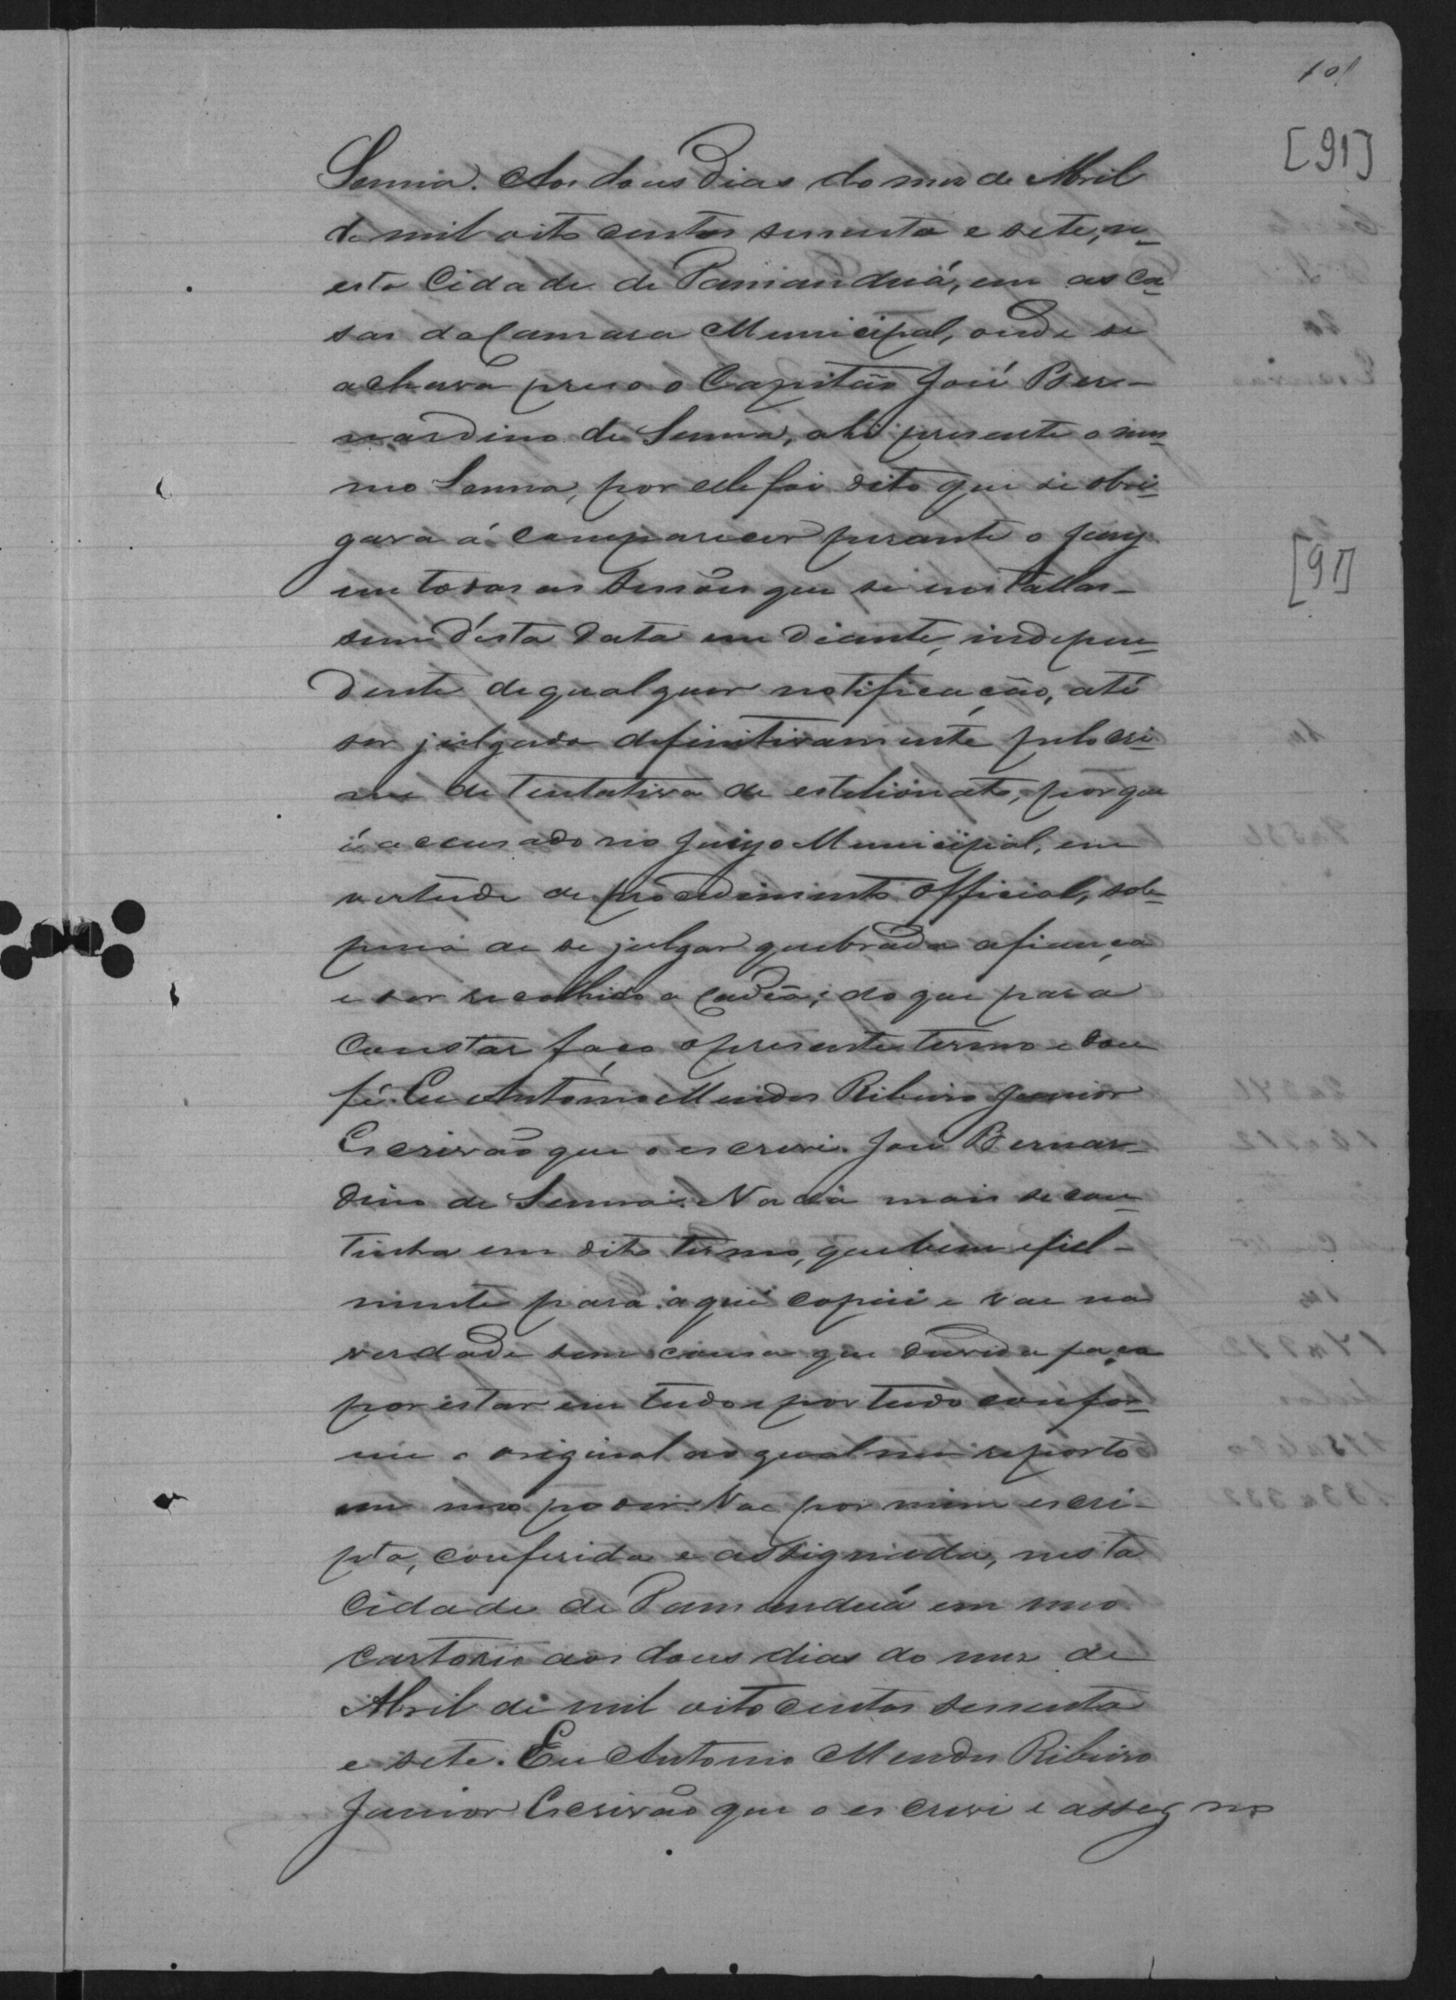 101
[91]
Senna. Aos dous dias do mes de Abril
de mil oito centos sessenta e sete, n'-
esta Cidade de Tamanduá, em as ca-
sas da Camara Municipal, onde se
achava preso o Capitão José Ber-
nardino de Senna, ahi presente o mes-
mo Senna, por elle foi dito que se obri-
gava á comparecer perante o Jury
em todas as Sessões que se installas-
sem d'esta data em diante, indepen-
dente de qualquer notificação, até
ser julgado definitivamente pelo cri-
me de tentativa de estelionato, porque
é accusado no Juizo Municipal, em
vertude de procedimento official, sob-
pena de se julgar quebrada a fiança
e ser recolhido a Cadêa; do que para
Constar faço o presente termo e dou
fé. Eu Antonio Mendes Ribeiro Junior
Escrivão que o escrevi. José Bernar-
dino de Senna. Nada mais se con-
tinha em dito termo, que bem e fiel-
mente para aqui copiei e vae na
verdade sem cousa que duvida faça
por estar em tudo e por tudo confor-
me o original ao qual me reporto
em meo poder. Vae por mim escri-
pta, conferida e assignada, nesta
Cidade de Tamanduá em meo
cartorio aos dous dias do mez de
Abril de mil oito centos sessenta
e sete. Eu Antonio Mendes Ribeiro
Junior Escrivão que o escrevi e assigno
[91]